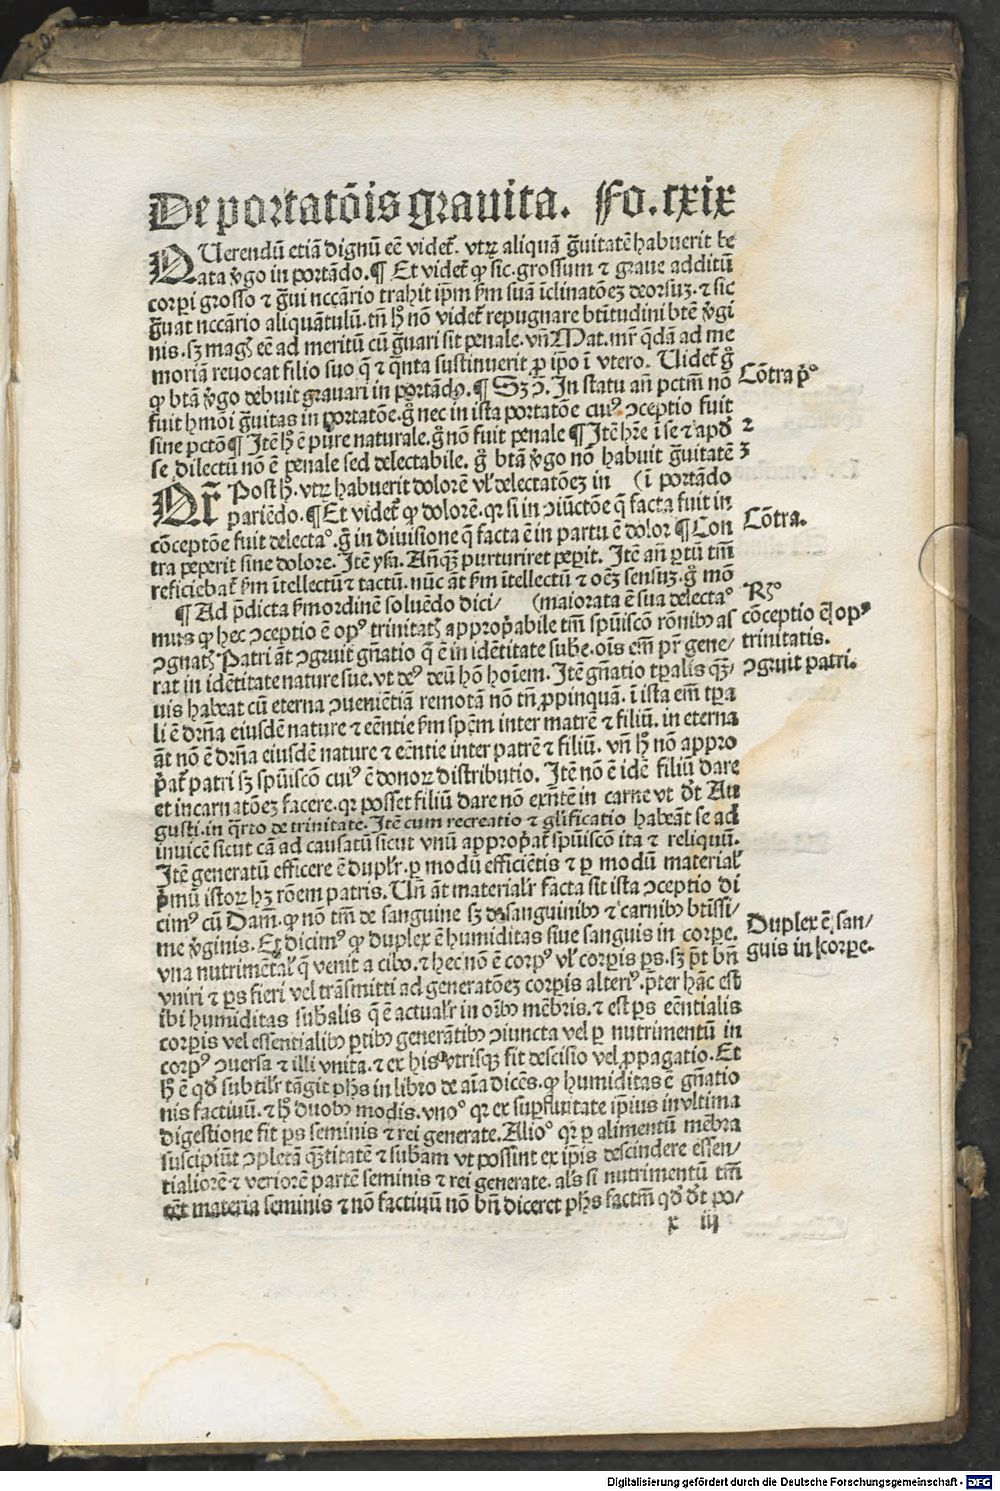 De portatōis grauita. Fo. cxix
QUerendū etiā dignū eē videt̄. vtꝝ aliquā g̃uitatē habuerit be
ata v̓go in portādo.¶ Et videt̄ ꝙ sic. grossum ⁊ graue additū
corpi grosso ⁊ g̃ui nccārio trahit ip̄m ẜm suā īclinatōeꝫ deorsuꝫ. ⁊ sic
g̃uat nccārio aliquātulū. tn̄ hͦ nō videt̄ repugnare btītudini btē v̓gi
nis. sꝫ magꝭ eē ad meritū cū g̃uari sit penale. vn̄ Mat. mr̄ q̄dā ad me
moriā reuocat filio suo q̄ ⁊ q̄nta sustinuerit ꝓ ip̄o ī vtero. Uidet̄ gͦ
ꝙ btā v̓go debuit grauari in portādo.¶ Sꝫ ꝯ̄. In statu an̄ pctm̄ nō
Cōtra pͦ
fuit hmōi g̃uitas in portatōe. gͦ nec in ista portatōe cuiꝰ ꝯceptio fuit
sine pctō¶ Itē hͦ ē pure naturale. gͦ nō fuit penale ¶ Itē hr̄e ī se ⁊ apd̓
2
se dilectū nō ē penale sed delectabile. gͦ btā v̓go nō habuit g̃uitatē
3
QR̄ Post hͦ. vtꝝ habuerit dolorē vł delectatōeꝫ in (ī portādo
pariēdo.¶ Et videt̄ ꝙ dolorē. qꝛ si in ꝯiūctōe q̄ facta fuit in
cōceptōe fuit delectaᵒ. gͦ in diuisione q̄ facta ē in partu ē dolor ¶ Con
Cōtra.
tra peperit sine dolore. Itē ysa. Anq̄ꝫ purturiret peꝑit. Itē an̄ ꝑtū tm̄
reficiebat̄ ẜm ītellectū ⁊ tactū. nūc āt ẜm ītellectū ⁊ oēs sensuꝫ. gͦ mō
¶ Ad p̄dicta ẜm ordinē soluēdo dici/ (maiorata ē sua delectaᵒ
Rͦ
mus ꝙ hec ꝯceptio ē opꝰ trinitatꝭ approp̄abile tm̄ sp̄uiscō rōnibꝫ as
cōceptio ē opꝰ
ꝯgnatꝭ Patri āt ꝯgruit gn̄atio q̄ ē in idētitate sub̄e. oīs em̄ pr̄ gene/
trinitatis.
rat in idētitate nature sue. vt deꝰ deū hō hoīem. Itē gn̄atio tp̄alis q̄ꝫ/
ꝯgruit patri.
uis habeat cū eterna ꝯueniētiā remotā nō tn̄ ꝓpinquā. ī ista em̄ tp̄a
li ē dr̄na eiusdē nature ⁊ eēntie ẜm spēm inter matrē ⁊ filiū. in eterna
āt nō ē dr̄na eiusdē nature ⁊ eēntie inter patrē ⁊ filiū. vn̄ hͦ nō appro
p̄at̄ patri sꝫ sp̄uiscō cuiꝰ ē donoꝝ distributio. Itē nō ē idē filiū dare
et incarnatōeꝫ facere. qꝛ posset filiū dare nō exn̄tē in carne vt dt̄ Au
gusti. in q̄rto de trinitate. Itē cum recreatio ⁊ glīficatio habeāt se ad
inuicē sicut cā ad causatū sicut vnū approp̄at̄ sp̄uiscō ita ⁊ reliquū.
Itē generatū efficere ē duplr̄. ꝑ modū efficiētis ⁊ ꝑ modū materiał
p̄mū istoꝝ hꝫ rōem patris. Un̄ āt materialr̄ facta sit ista ꝯceptio di
cimꝰ cū Dam̄. ꝙ nō tm̄ de sanguine sꝫ de sanguinibꝫ ⁊ carnibꝫ btīssi/
me v̓ginis. Ex̄ dicimꝰ ꝙ duplex ē humiditas siue sanguis in corpe.
Duplex ē san/
guis in corpe.
vna nutrimētał q̄ venit a cibo. ⁊ hec nō ē corpꝰ vł corpis ꝑs. sꝫ p̄t bn̄
vniri ⁊ ꝑs fieri vel trāsmitti ad generatōeꝫ corpis alteriꝰ. p̄ter hāc est
ibi humiditas sub̄alis q̄ ē actualr̄ in oībꝫ mēbris. ⁊ est ꝑs eēntialis
corpis vel essentialibꝫ ꝑtibꝫ generātibꝫ ꝯiuncta vel ꝑ nutrimentū in
corpꝰ ꝯuersa ⁊ illi vnita. ⁊ ex his vtrisqꝫ fit descisio vel ꝓpagatio. Et
hͦ ē qd̓ subtilr̄ tāgit ph̄s in libro de aīa dicēs. ꝙ humiditas ē gn̄atio
nis factiuū. ⁊ hͦ duobꝫ modis. vnoᵒ qꝛ ex suꝑfluitate ip̄ius in vltima
digestione fit ꝑs seminis ⁊ rei generate. Alioᵒ qꝛ ꝑ alimentū mēbra
suscipiūt ꝯpletā q̄ꝫtitatē ⁊ sub̄am vt possint ex ip̄is descindere essen/
tialiorē ⁊ veriorē partē seminis ⁊ rei generate. als̄ si nutrimentū tm̄
eēt materia seminis ⁊ nō factiuū nō bn̄ diceret ph̄s factm̄ qd̓ dt̄ po/
x iij
Digitalisierung gefördert durch die Deutsche Forschungsgemeinschaft - DFG